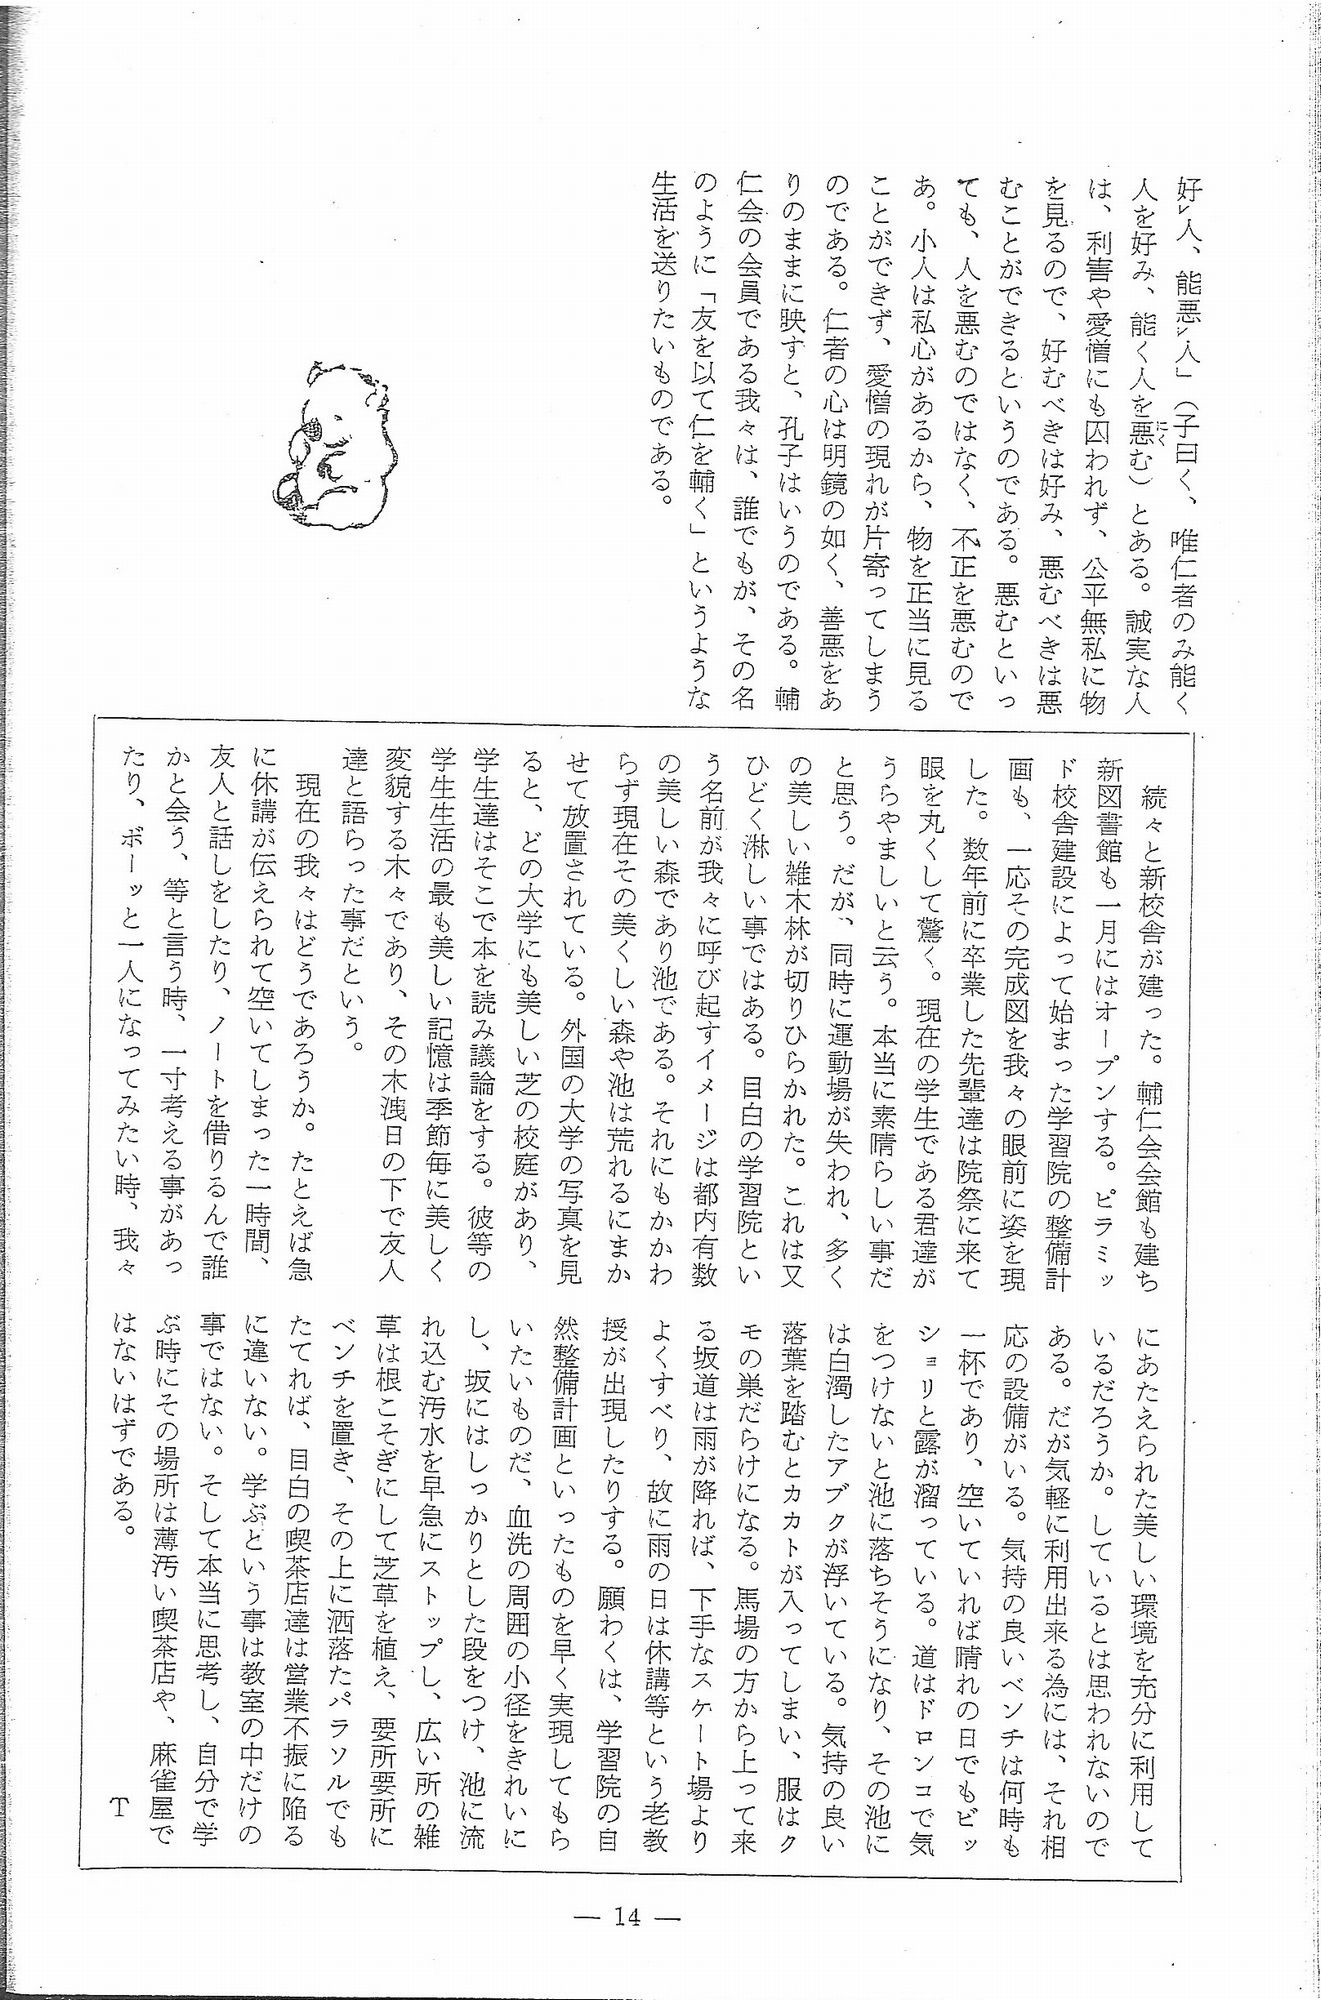 好レ人、能悪レ人」(子曰く、唯仁者のみ能く
人を好み、能く人を悪む)とある。誠実な人
にく
は、利害や愛憎にも囚われず、公平無私に物
を見るので、好むべきは好み、悪むべきは悪
むことができるというのである。悪むといっ
ても、人を悪むのではなく、不正を悪むので
あ。小人は私心があるから、物を正当に見る
ことができず、愛憎の現れが片寄ってしまう
のである。仁者の心は明鏡の如く、善悪をあ
りのままに映すと、孔子はいうのである。輔
仁会の会員である我々は、誰でもが、その名
のように「友を以て仁を輔く」というような
生活を送りたいものである。
続々と新校舎が建った。輔仁会会館も建ち
新図書館も一月にはオープンする。ピラミッ
ド校舎建設によって始まった学習院の整備計
画も、一応その完成図を我々の眼前に姿を現
した。数年前に卒業した先輩達は院祭に来て
眼を丸くして驚く。現在の学生である君達が
うらやましいと云う。本当に素晴らしい事だ
と思う。だが、同時に運動場が失われ、多く
の美しい雑木林が切りひらかれた。これは又
ひどく淋しい事ではある。目白の学習院とい
う名前が我々に呼び起すイメージは都内有数
の美しい森であり池である。それにもかかわ
らず現在その美くしい森や池は荒れるにまか
せて放置されている。外国の大学の写真を見
ると、どの大学にも美しい芝の校庭があり、
学生達はそこで本を読み議論をする。彼等の
学生生活の最も美しい記憶は季節毎に美しく
変貌する木々であり、その木洩日の下で友人
達と語らった事だという。
現在の我々はどうであろうか。たとえば急
に休講が伝えられて空いてしまった一時間、
友人と話しをしたり、ノートを借りるんで誰
かと会う、等と言う時、一寸考える事があっ
たり、ボーッと一人になってみたい時、我々
にあたえられた美しい環境を充分に利用して
いるだろうか。しているとは思われないので
ある。だが気軽に利用出来る為には、それ相
応の設備がいる。気持の良いベンチは何時も
一杯であり、空いていれば晴れの日でもビッ
ショリと露が溜っている。道はドロンコで気
をつけないと池に落ちそうになり、その池に
は白濁したアブクが浮いている。気持の良い
落葉を踏むとカカトが入ってしまい、服はク
モの巣だらけになる。馬場の方から上って来
る坂道は雨が降れば、下手なスケート場より
よくすべり、故に雨の日は休講等という老教
授が出現したりする。願わくは、学習院の自
然整備計画といったものを早く実現してもら
いたいものだ、血洗の周囲の小径をきれいに
し、坂にはしっかりとした段をつけ、池に流
れ込む汚水を早急にストップし、広い所の雑
草は根こそぎにして芝草を植え、要所要所に
ベンチを置き、その上に洒落たパラソルでも
たてれば、目白の喫茶店達は営業不振に陥る
に違いない。学ぶという事は教室の中だけの
事ではない。そして本当に思考し、自分で学
ぶ時にその場所は薄汚い喫茶店や、麻雀屋で
はないはずである。 T
— 14 —